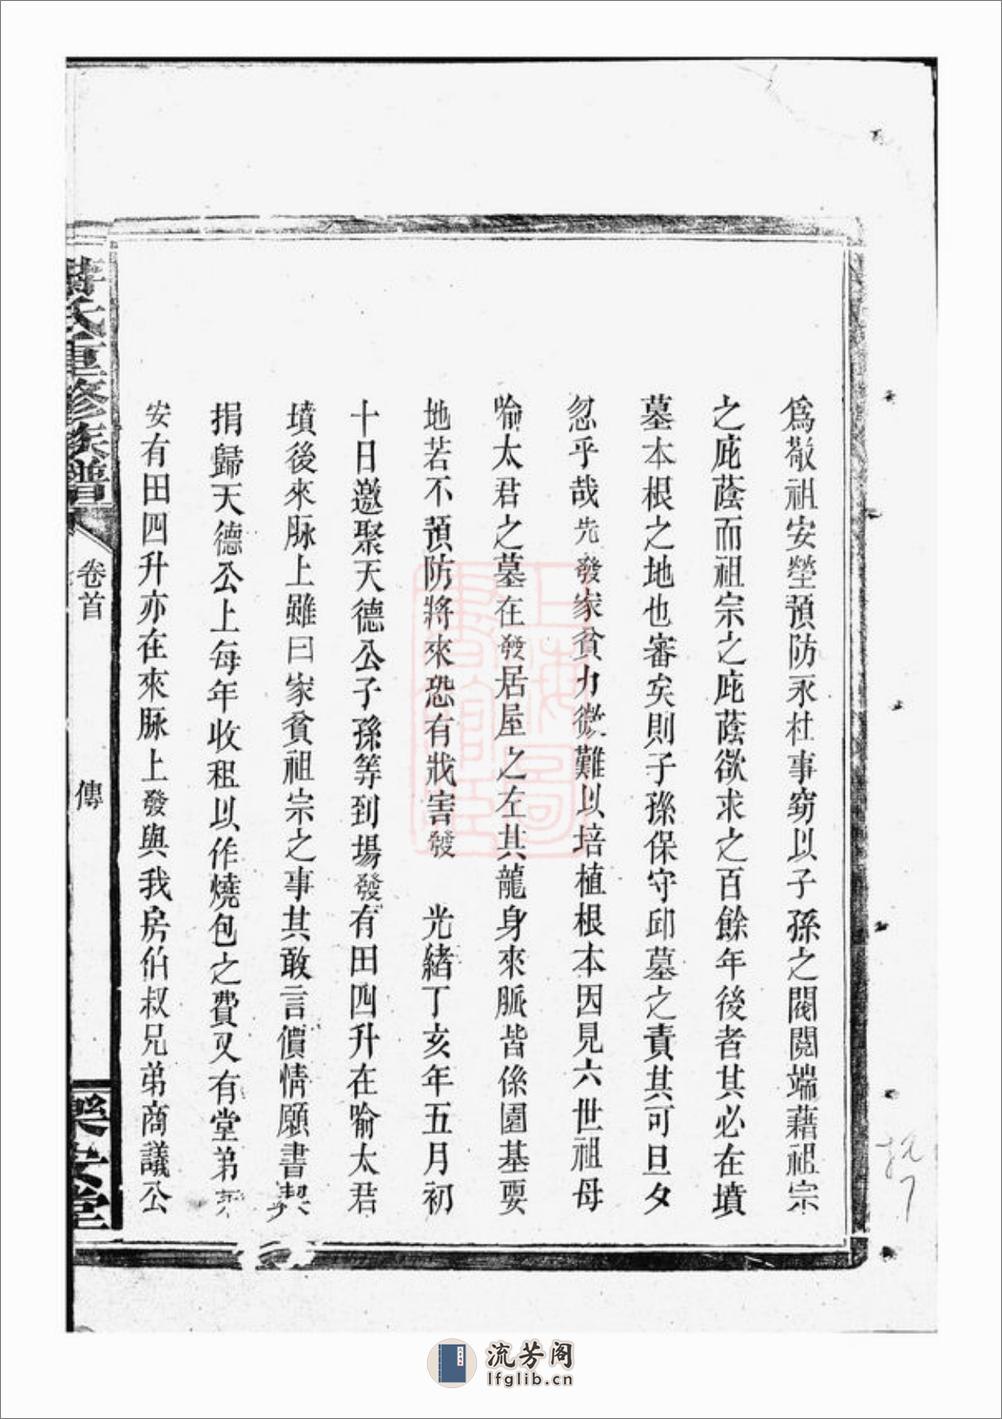 爲敬祖安塋預防永杜事窃以子孫之閥閱端藉祖宗
之庇蔭而祖宗之庇蔭欲求之百餘年後者其必在墳
墓本根之地也審矣則子孫保守邱墓之責其可旦夕
忽乎哉先發家貧力微難以培植根本因見六世祖母
喻太君之墓在發居屋之左其龍身來脈皆係園基要
地若不預防將來恐有戕害發 光緒丁亥年五月初
十日邀聚天德公子孫等到場發有田四升在喻太君
墳後來脉上雖曰家貧祖宗之事其敢言價情願書契
捐歸天德公上每年收租以作燒包之費又有堂弟
安有田四升亦在來脉上發與我房伯叔兄弟商議公
氏重修族譜
卷首
傳
樂安堂
流芳阁
lfglib.cn